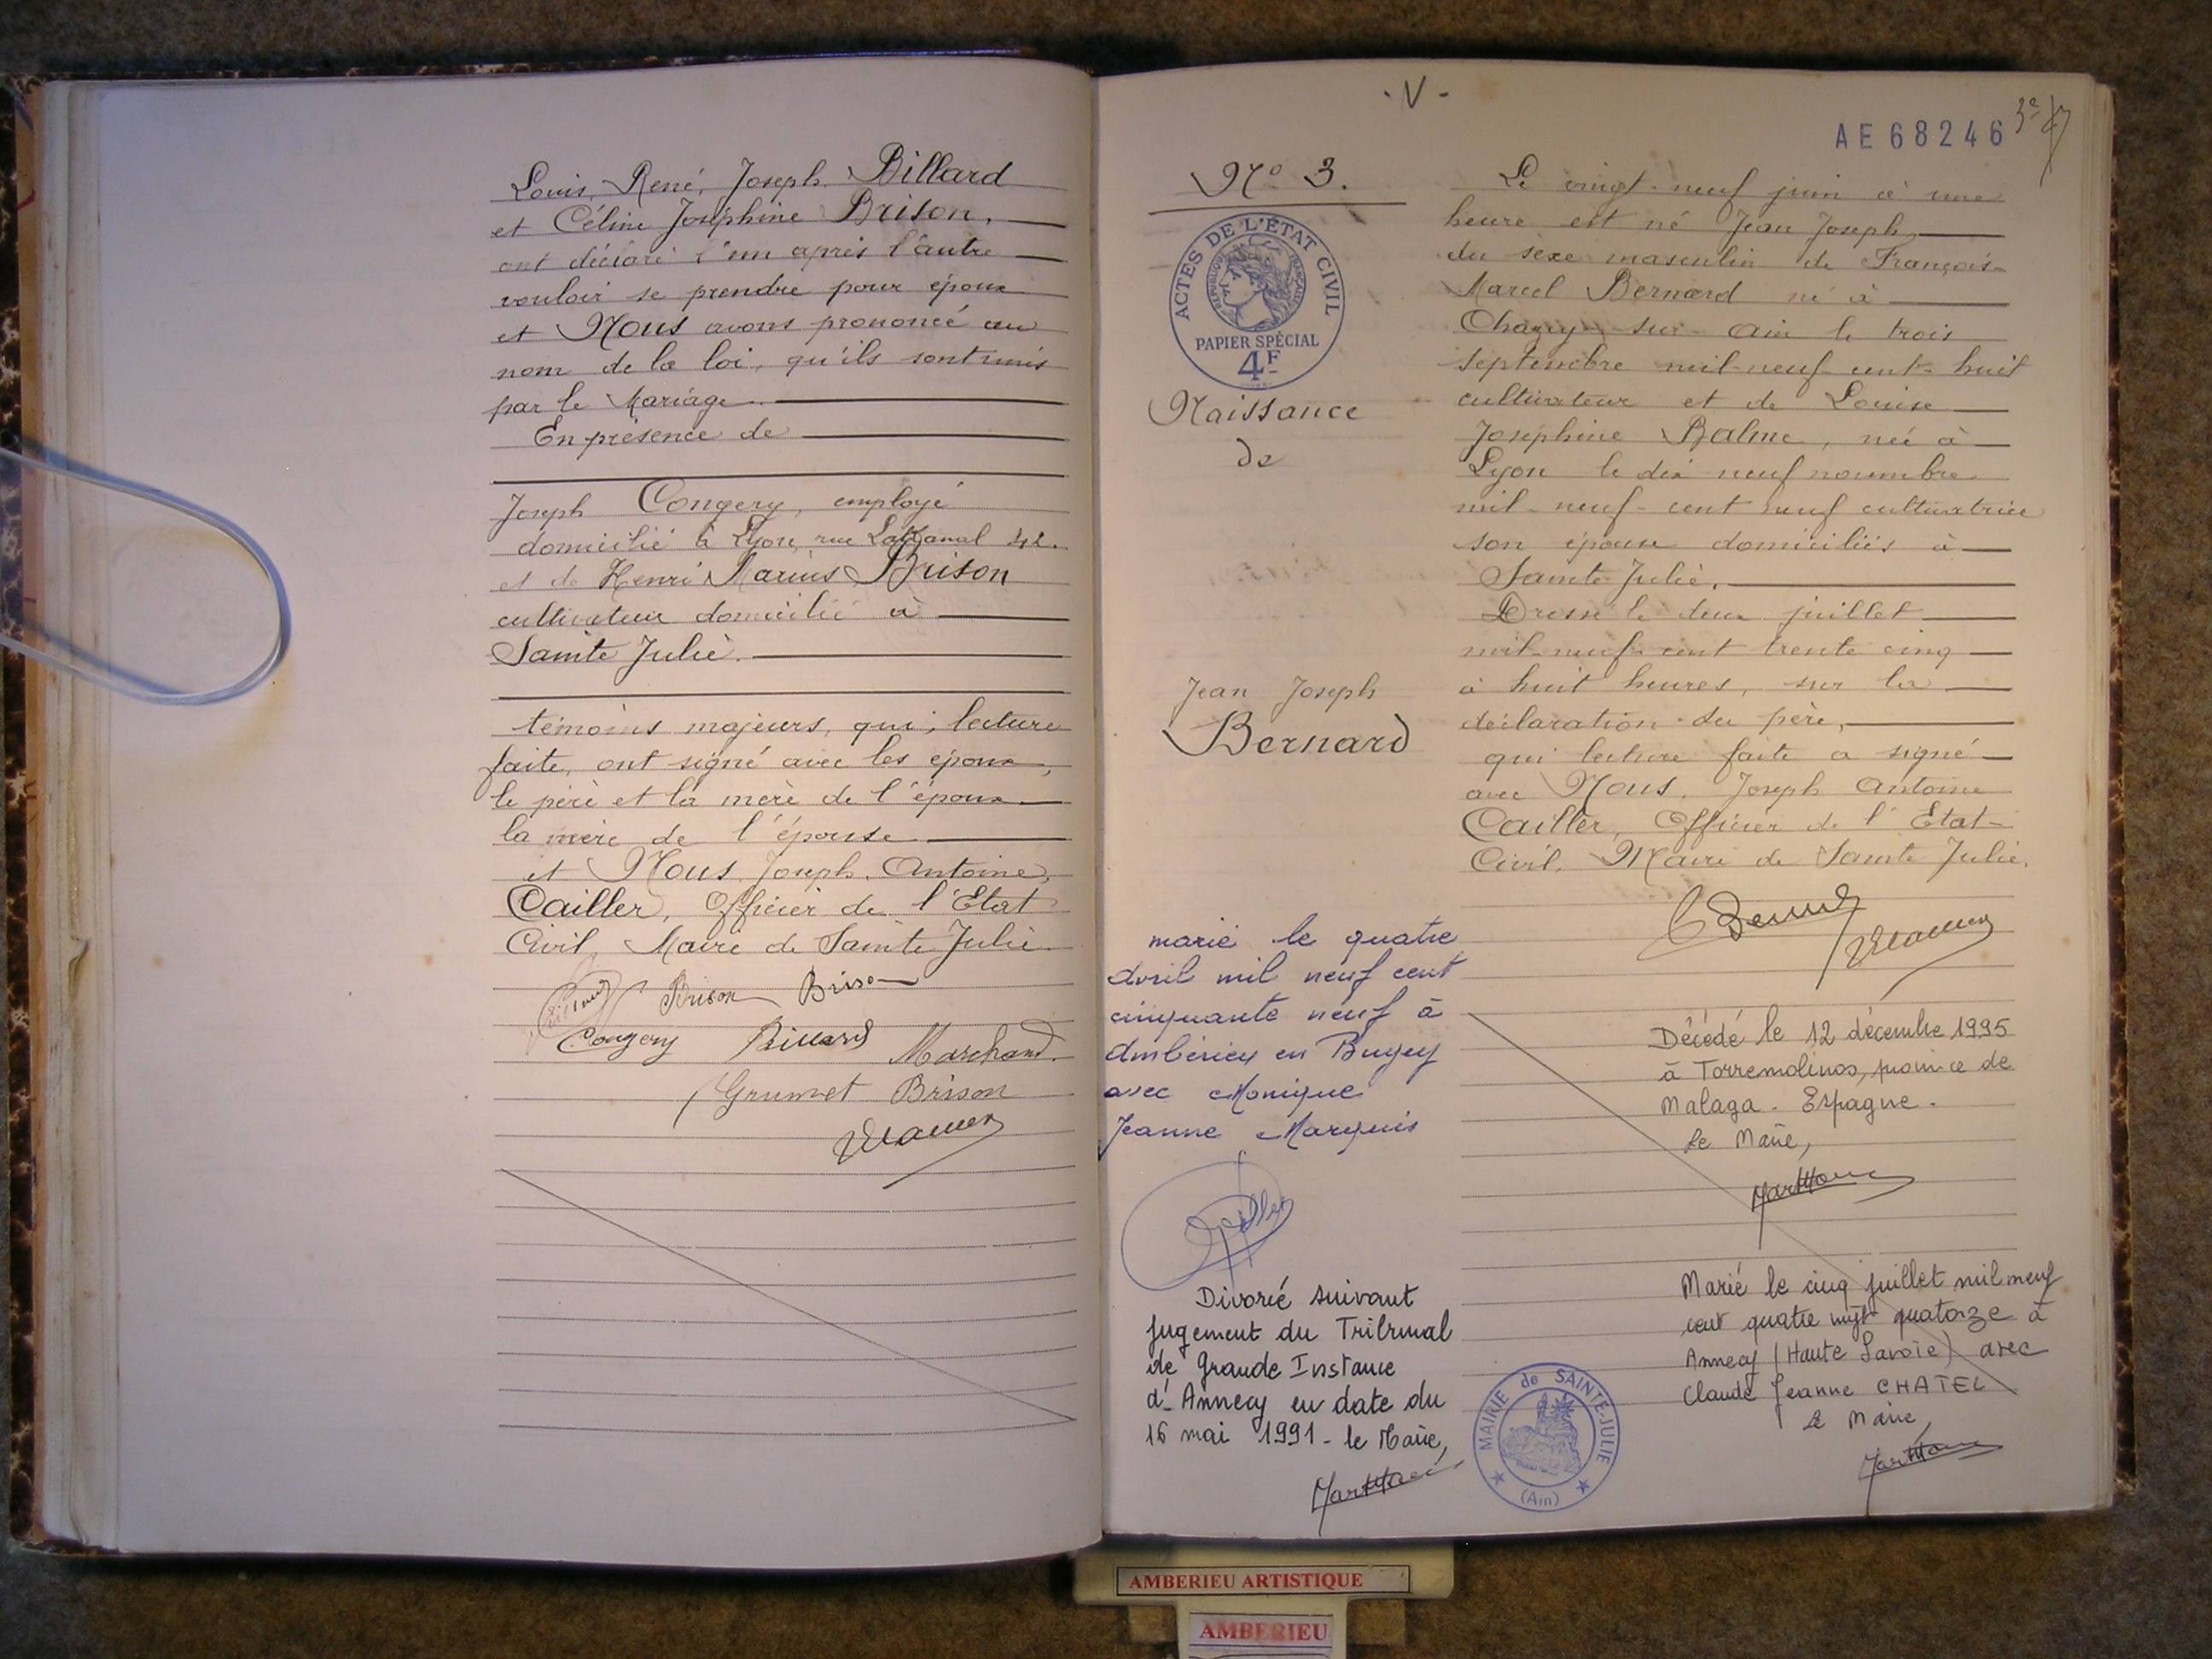 Louis, René, Joseph Billard
et Céline Joséphine Brison,
ont déclaré l'un après l'autre
vouloir se prendre pour époux
et Nous avons prononcé au
nom de la loi, qu'ils sont unis
par le Mariage.
En présence de
Joseph Congery, employé
domicilié à Lyon, rue Lakanal 42.
et de Henri Marius Brison
cultivateur domicilié à
Sainte Julie.
témoins majeurs, qui, lecture
faite, ont signé avec les époux,
le père et la mère de l'époux
la mère de l'épouse
et Nous Joseph, Antoine,
Cailler, Officier de l'Etat
Civil, Maire de Sainte Julie.
Brison Brison
Congery Billard Marchand.
Grumet Brison
- V -
AE 68246
N° 3.
ACTES DE L'ÉTAT CIVIL
RÉPUBLIQUE FRANÇAISE
PAPIER SPÉCIAL
4F
Naissance
de
Jean Joseph
Bernard
Le vingt-neuf juin à une
heure est né Jean Joseph
du sexe masculin de François-
Marcel Bernard né à
Chazey-sur-Ain le trois
septembre mil-neuf-cent-huit
cultivateur et de Louise
Joséphine Balme, née à
Lyon le dix neuf novembre
mil-neuf-cent neuf cultivatrice
son épouse domiciliés à
Sainte-Julie.
Dressé le deux juillet
mil-neuf-cent trente cinq
à huit heures, sur la
déclaration du père,
qui lecture faite a signé
avec Nous, Joseph Antoine
Cailler, Officier de l'Etat-
Civil, Maire de Sainte Julie.
marié le quatre
Avril mil neuf cent
cinquante neuf à
Ambérieu en Bugey
avec Monique
Jeanne Marquis
Divorcé suivant
jugement du Tribunal
de Grande Instance
d'Annecy en date du
16 mai 1991 - le Maire,
Décédé le 12 décembre 1995
à Torremolinos, province de
Malaga - Espagne -
Le Maire,
Marié le cinq juillet mil neuf
cent quatre vingt quatorze à
Annecy (Haute Savoie) avec
Claude Jeanne CHATEL
Le Maire,
MAIRIE de SAINTE-JULIE
(Ain)
AMBERIEU ARTISTIQUE
AMBERIEU